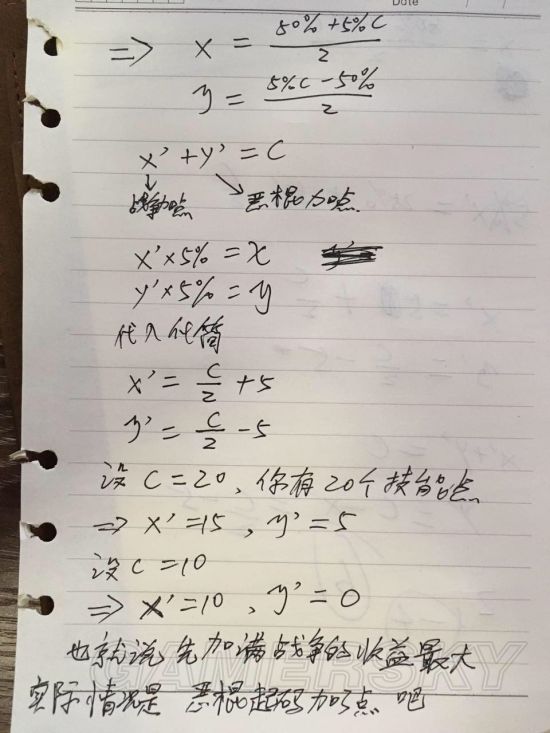 Date
⇒ x = (50% + 5%C) / 2
y = (5%C - 50%) / 2
x' + y' = C
战争加点 恶棍加点
x' × 5% = x
y' × 5% = y
代入化简
x' = C/2 + 5
y' = C/2 - 5
设 C = 20, 你有20个技能点
⇒ x' = 15, y' = 5
设 C = 10
⇒ x' = 10, y' = 0
也就说 先加满战争的收益最大
GAMERSKY
实际情况是 恶棍起码加5点 吧